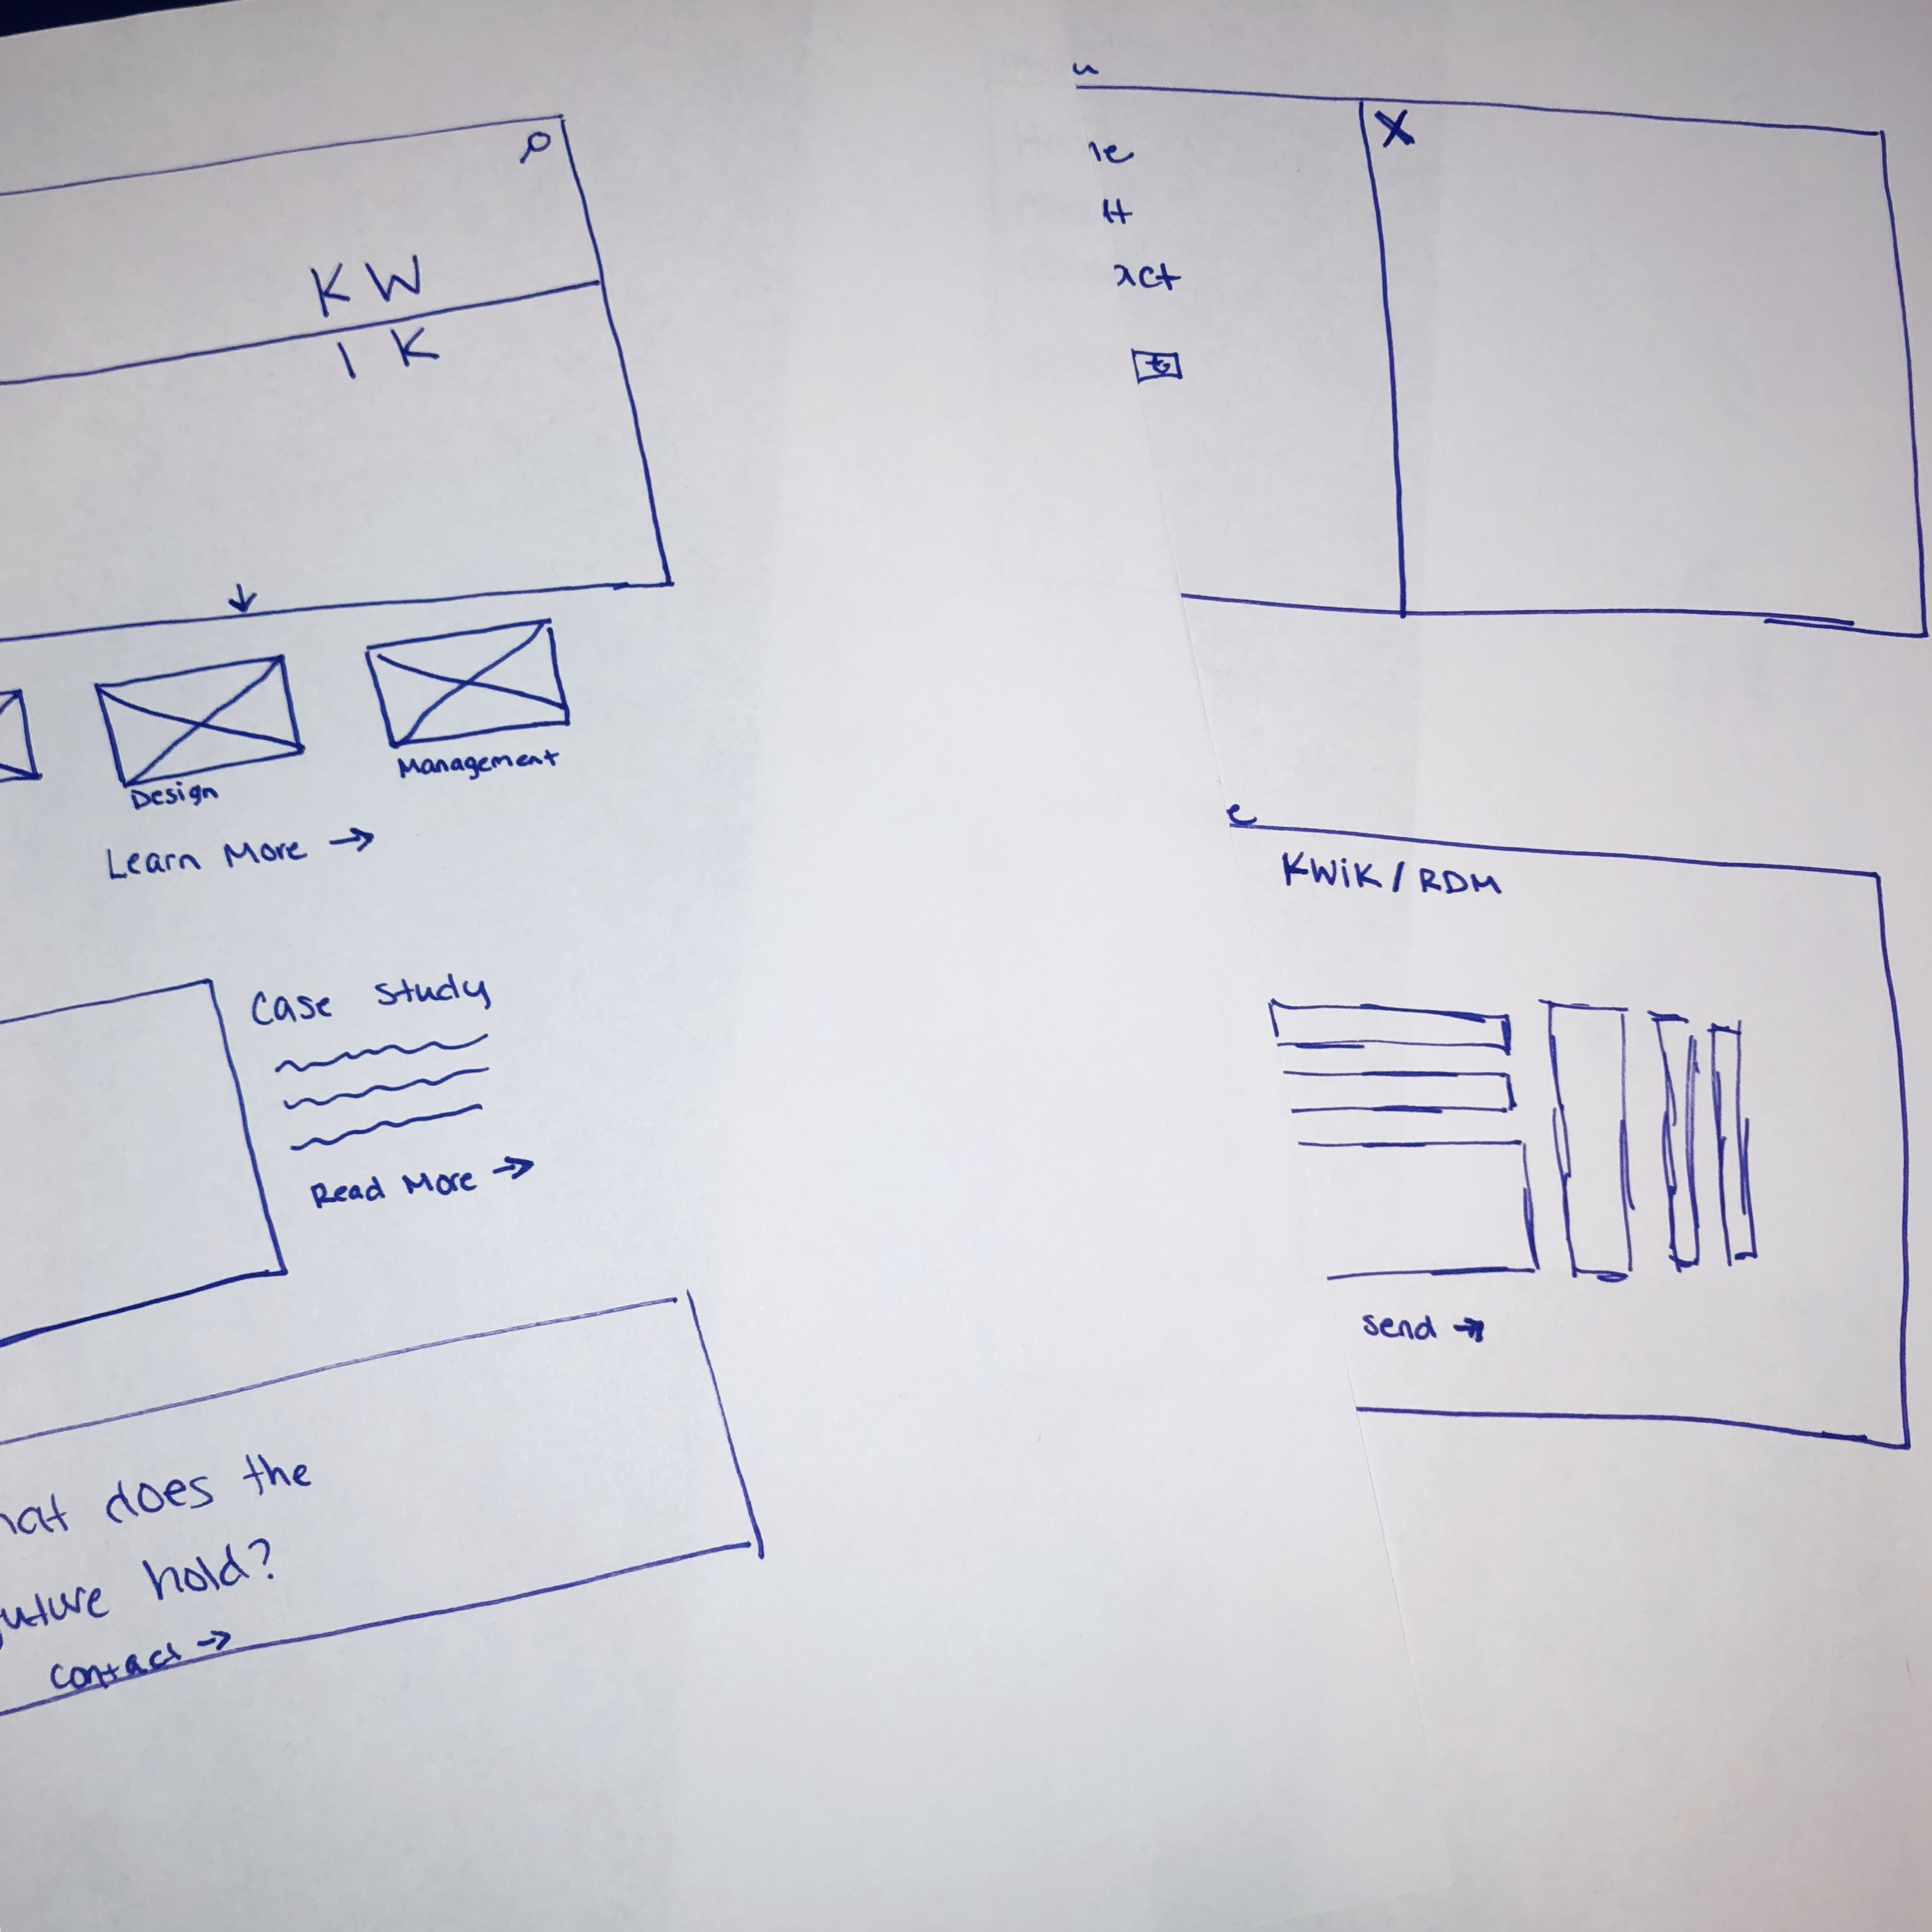 K W
I K
Design
Management
Learn More →
Case Study
Read More →
does the
hold?
Contact →
X
KWiK / RDM
Send →